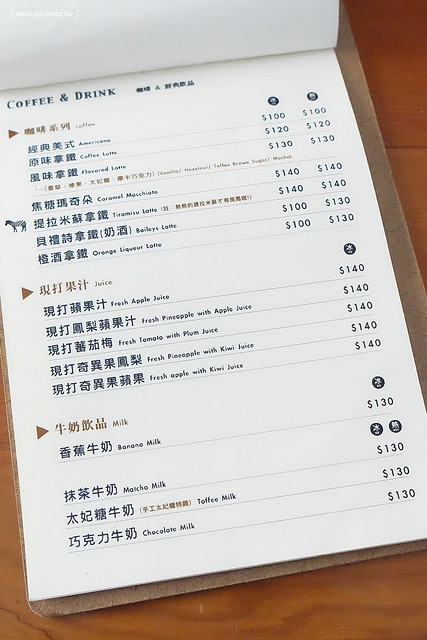 [ www.pockets.tw ]
COFFEE & DRINK 咖啡 & 經典飲品
咖啡系列 coffee 冰 熱
經典美式 Americano $100 $100
原味拿鐵 Coffee Latte $120 $120
風味拿鐵 Flavored Latte $130 $130
(香草、榛果、太妃糖、摩卡巧克力) (Vanilla/ Hazelnut/ Toffee Brown Sugar/ Mocha)
焦糖瑪奇朵 Caramel Macchiato $140 $140
提拉米蘇拿鐵 Tiramisu Latte $140 $140
貝禮詩拿鐵(奶酒) Baileys Latte $100 $100
橙酒拿鐵 Orange Liqueur Latte $130 $130
現打果汁 Juice 冰
現打蘋果汁 Fresh Apple Juice $140
現打鳳梨蘋果汁 Fresh Pineapple with Apple Juice $140
現打蕃茄梅 Fresh Tomato with Plum Juice $140
現打奇異果鳳梨 Fresh Pineapple with Kiwi Juice $140
現打奇異果蘋果 Fresh apple with Kiwi Juice $140
牛奶飲品 Milk 冰
香蕉牛奶 Banana Milk $130
冰 熱
抹茶牛奶 Matcha Milk $130
太妃糖牛奶 (手工太妃糖特調) Toffee Milk $130
巧克力牛奶 Chocolate Milk $130